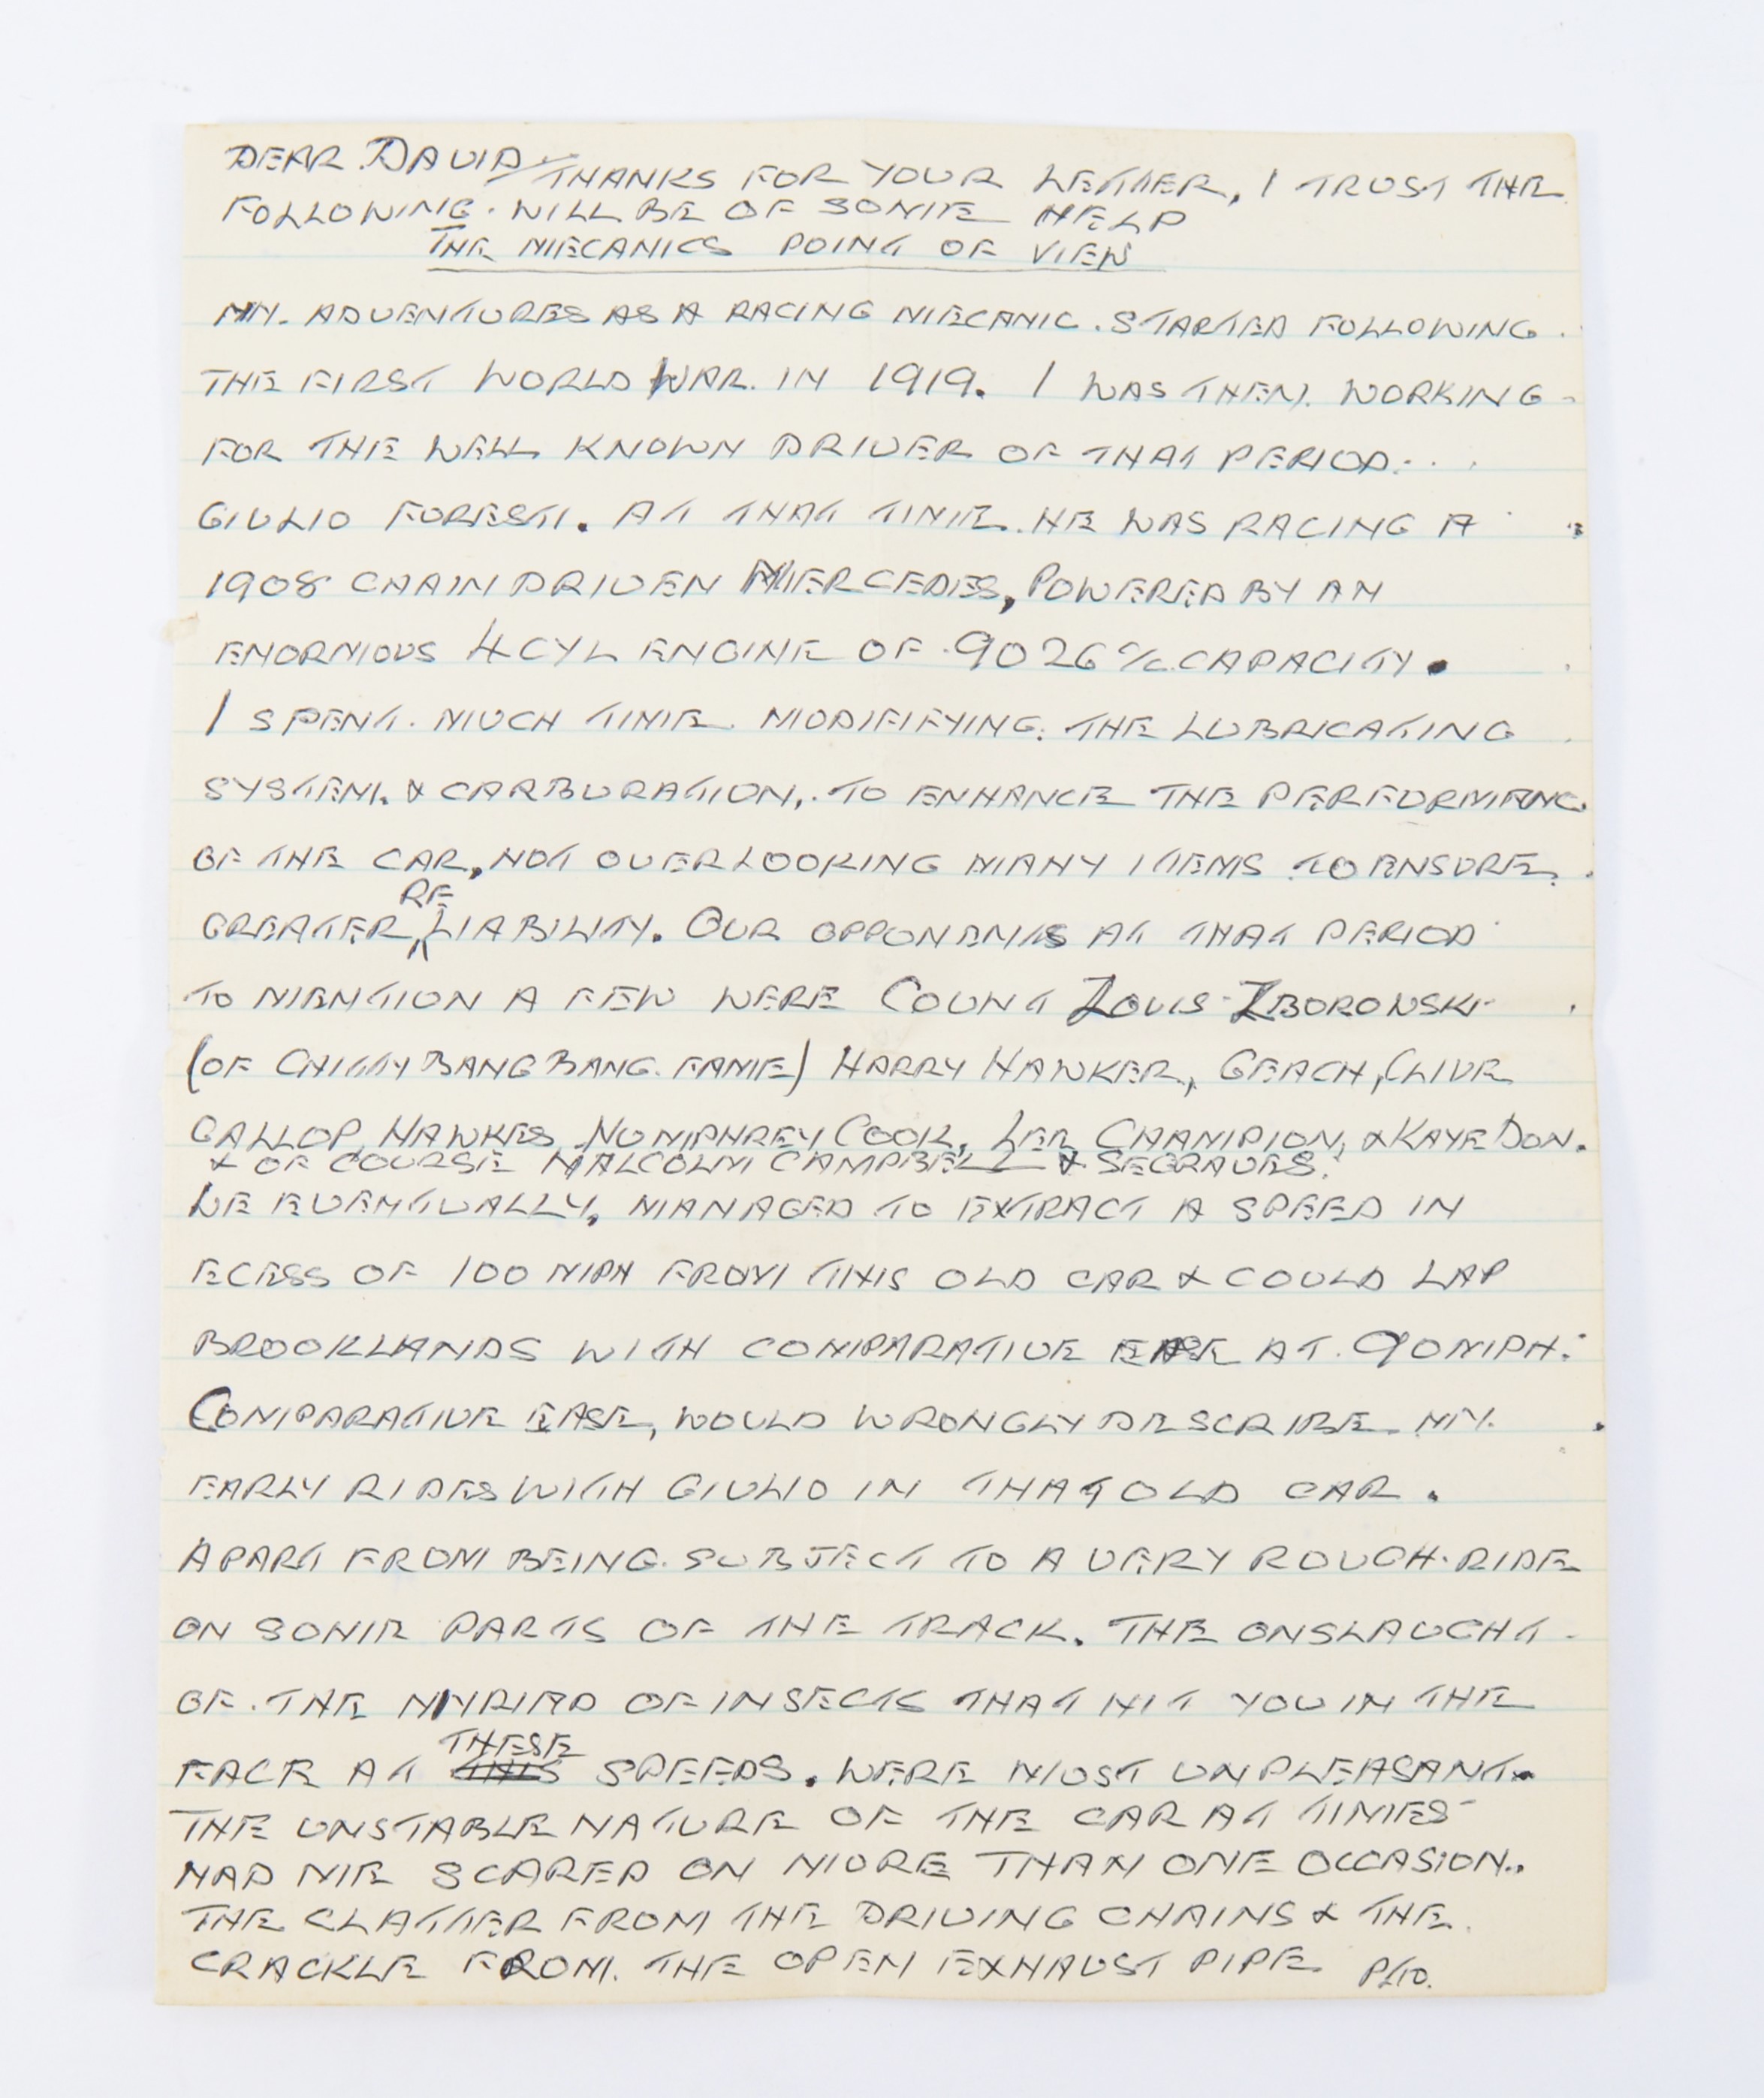 DEAR DAVID THANKS FOR YOUR LETTER, I TRUST THE
FOLLOWING. WILL BE OF SOME HELP
THE MECANICS POINT OF VIEW
MY. ADVENTURES AS A RACING MECANIC. STARTED FOLLOWING.
THE FIRST WORLD WAR. IN 1919. I WAS THEN. WORKING
FOR THE WELL KNOWN DRIVER OF THAT PERIOD...
GIULIO FORESTI. AT THAT TIME. HE WAS RACING A
1908 CHAIN DRIVEN MERCEDES, POWERED BY AN
ENORMOUS 4 CYL ENGINE OF 9026 c/c. CAPACITY.
I SPENT. MUCH TIME MODIFIFYING. THE LUBRICATING
SYSTEM. & CARBURATION,. TO ENHANCE THE PERFORMANC.
OF THE CAR, NOT OVERLOOKING MANY ITEMS TO ENSURE.
GREATER, RELIABILITY. OUR OPPONENTS AT THAT PERIOD
TO MENTION A FEW WERE COUNT LOUIS ZBOROWSKI
(OF CHITTY BANG BANG. FAME) HARRY HAWKER, GEACH, CLIVE
GALLOP, HAWKES, HUMPHREY COOK, LEN CHAMPION, & KAYE DON.
& OF COURSE MALCOLM CAMPBELL & SEGRAVES.
WE EVENTUALLY, MANAGED TO EXTRACT A SPEED IN
ECESS OF 100 MPH FROM THIS OLD CAR & COULD LAP
BROOKLANDS WITH COMPARATIVE EASE AT. 90 MPH.
COMPARATIVE EASE, WOULD WRONGLY DESCRIBE. MY.
EARLY RIDES WITH GIULIO IN THAT OLD CAR.
APART FROM BEING. SUBJECT TO A VERY ROUGH. RIDE
ON SOME PARTS OF THE TRACK. THE ONSLAUGHT
OF. THE MYRIAD OF INSECTS THAT HIT YOU IN THE
FACE AT THESE SPEEDS. WERE MOST UNPLEASANT.
THE UNSTABLE NATURE OF THE CAR AT TIMES
HAD ME SCARED ON MORE THAN ONE OCCASION..
THE CLATTER FROM THE DRIVING CHAINS & THE.
CRACKLE FROM. THE OPEN EXHAUST PIPE PTO.